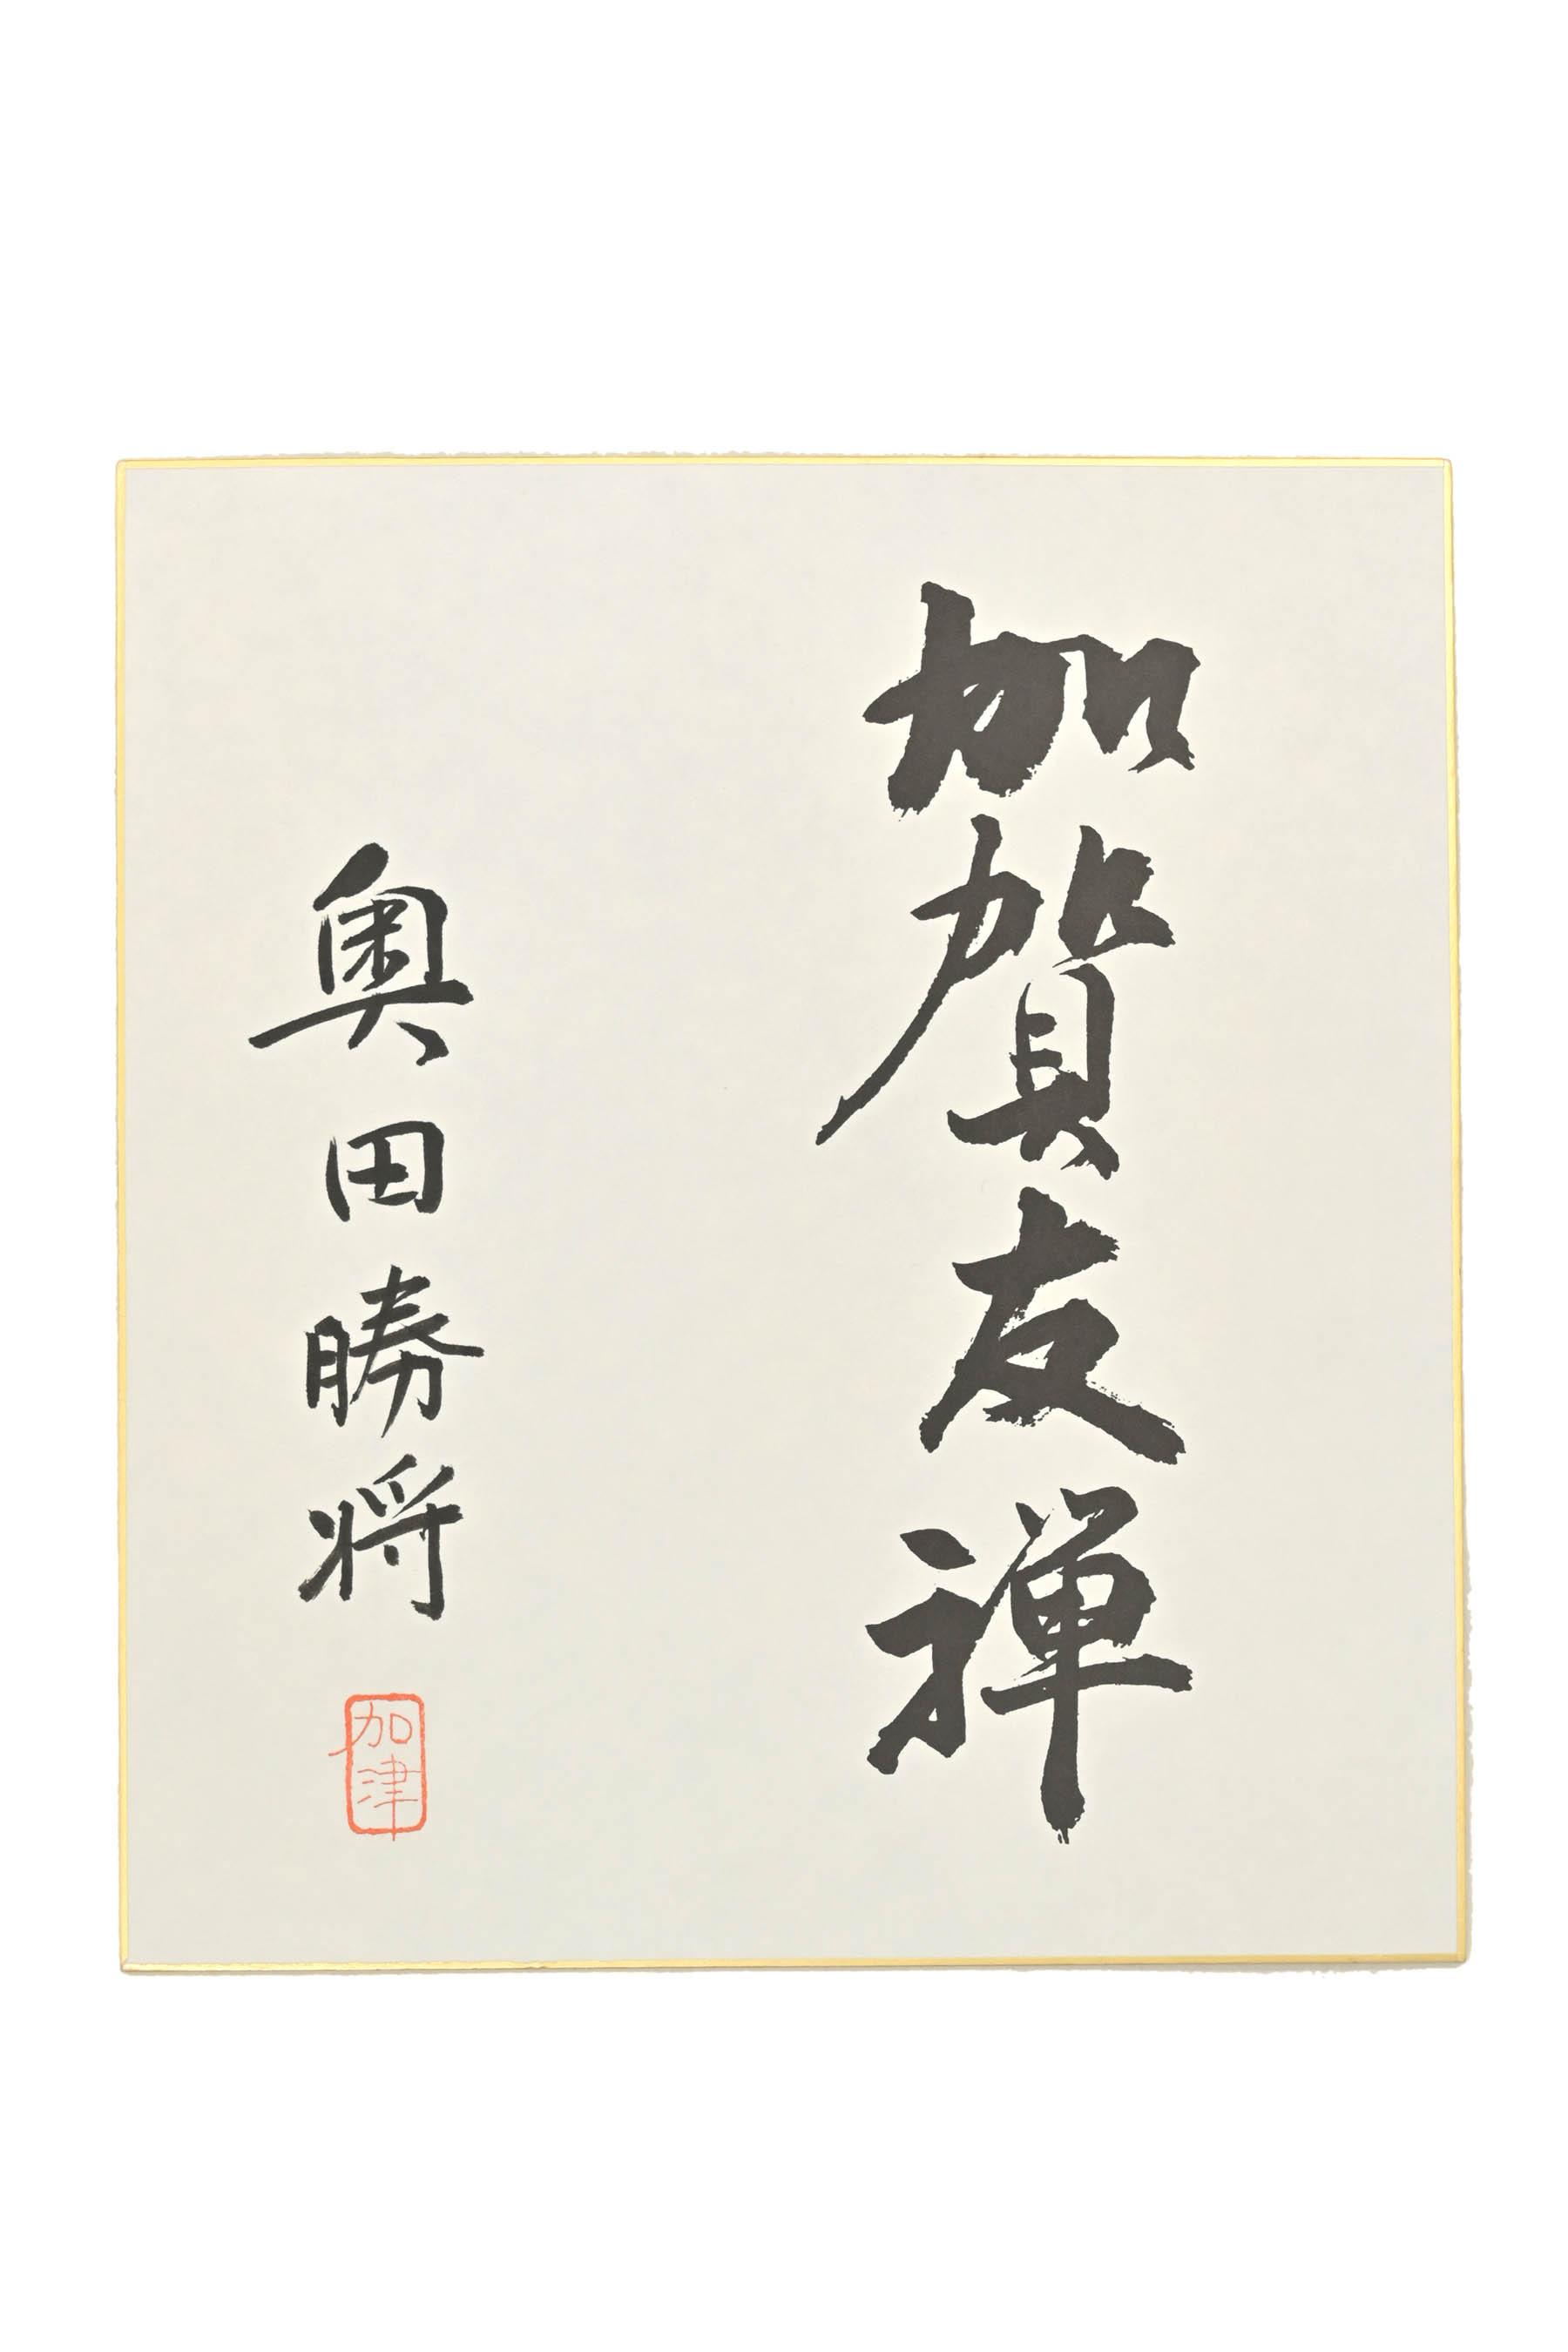 加賀友禅
奥田勝将
加津